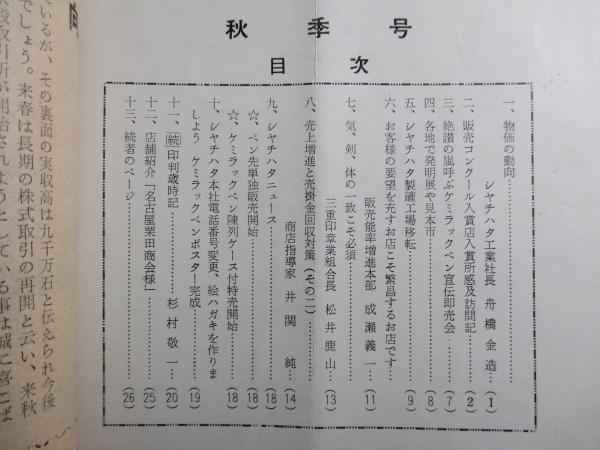 秋季号
目次
一、物価の動向………
シヤチハタ工業社長 舟橋金造…(1)
二、販売コンクール入賞店入賞所感及訪問記…(2)
三、絶讃の嵐呼ぶケミラックペン宣伝即売会…(7)
四、各地で発明展や見本市………(8)
五、シヤチハタ製罐工場移転………(9)
六、お客様の要望を充すお店こそ繁昌するお店です…
販売能率増進本部 成瀬義一…(11)
七、気、剣、体の一致こそ必須………
三重印章業組合長 松井鹿山…(13)
八、売上増進と売掛金回収対策(その二)………
商店指導家 井関純…(14)
九、シヤチハタニュース………(18)
☆、ペン先単独販売開始………(18)
☆、ケミラックペン陳列ケース付特売開始…(18)
十、シヤチハタ本社電話番号変更、絵ハガキを作りま
しよう ケミラックペンポスター完成………(19)
十一、続印判歳時記………杉村敬一…(20)
十二、店舗紹介「名古屋栗田商会様」………(25)
十三、続者のページ………(26)
ているが、その裏面の実収高は九千万石と伝えられ今後
でしょう。来春は長期の株式取引の再開と云い、来秋
取引所が開始されようとしている事は誠に喜こば